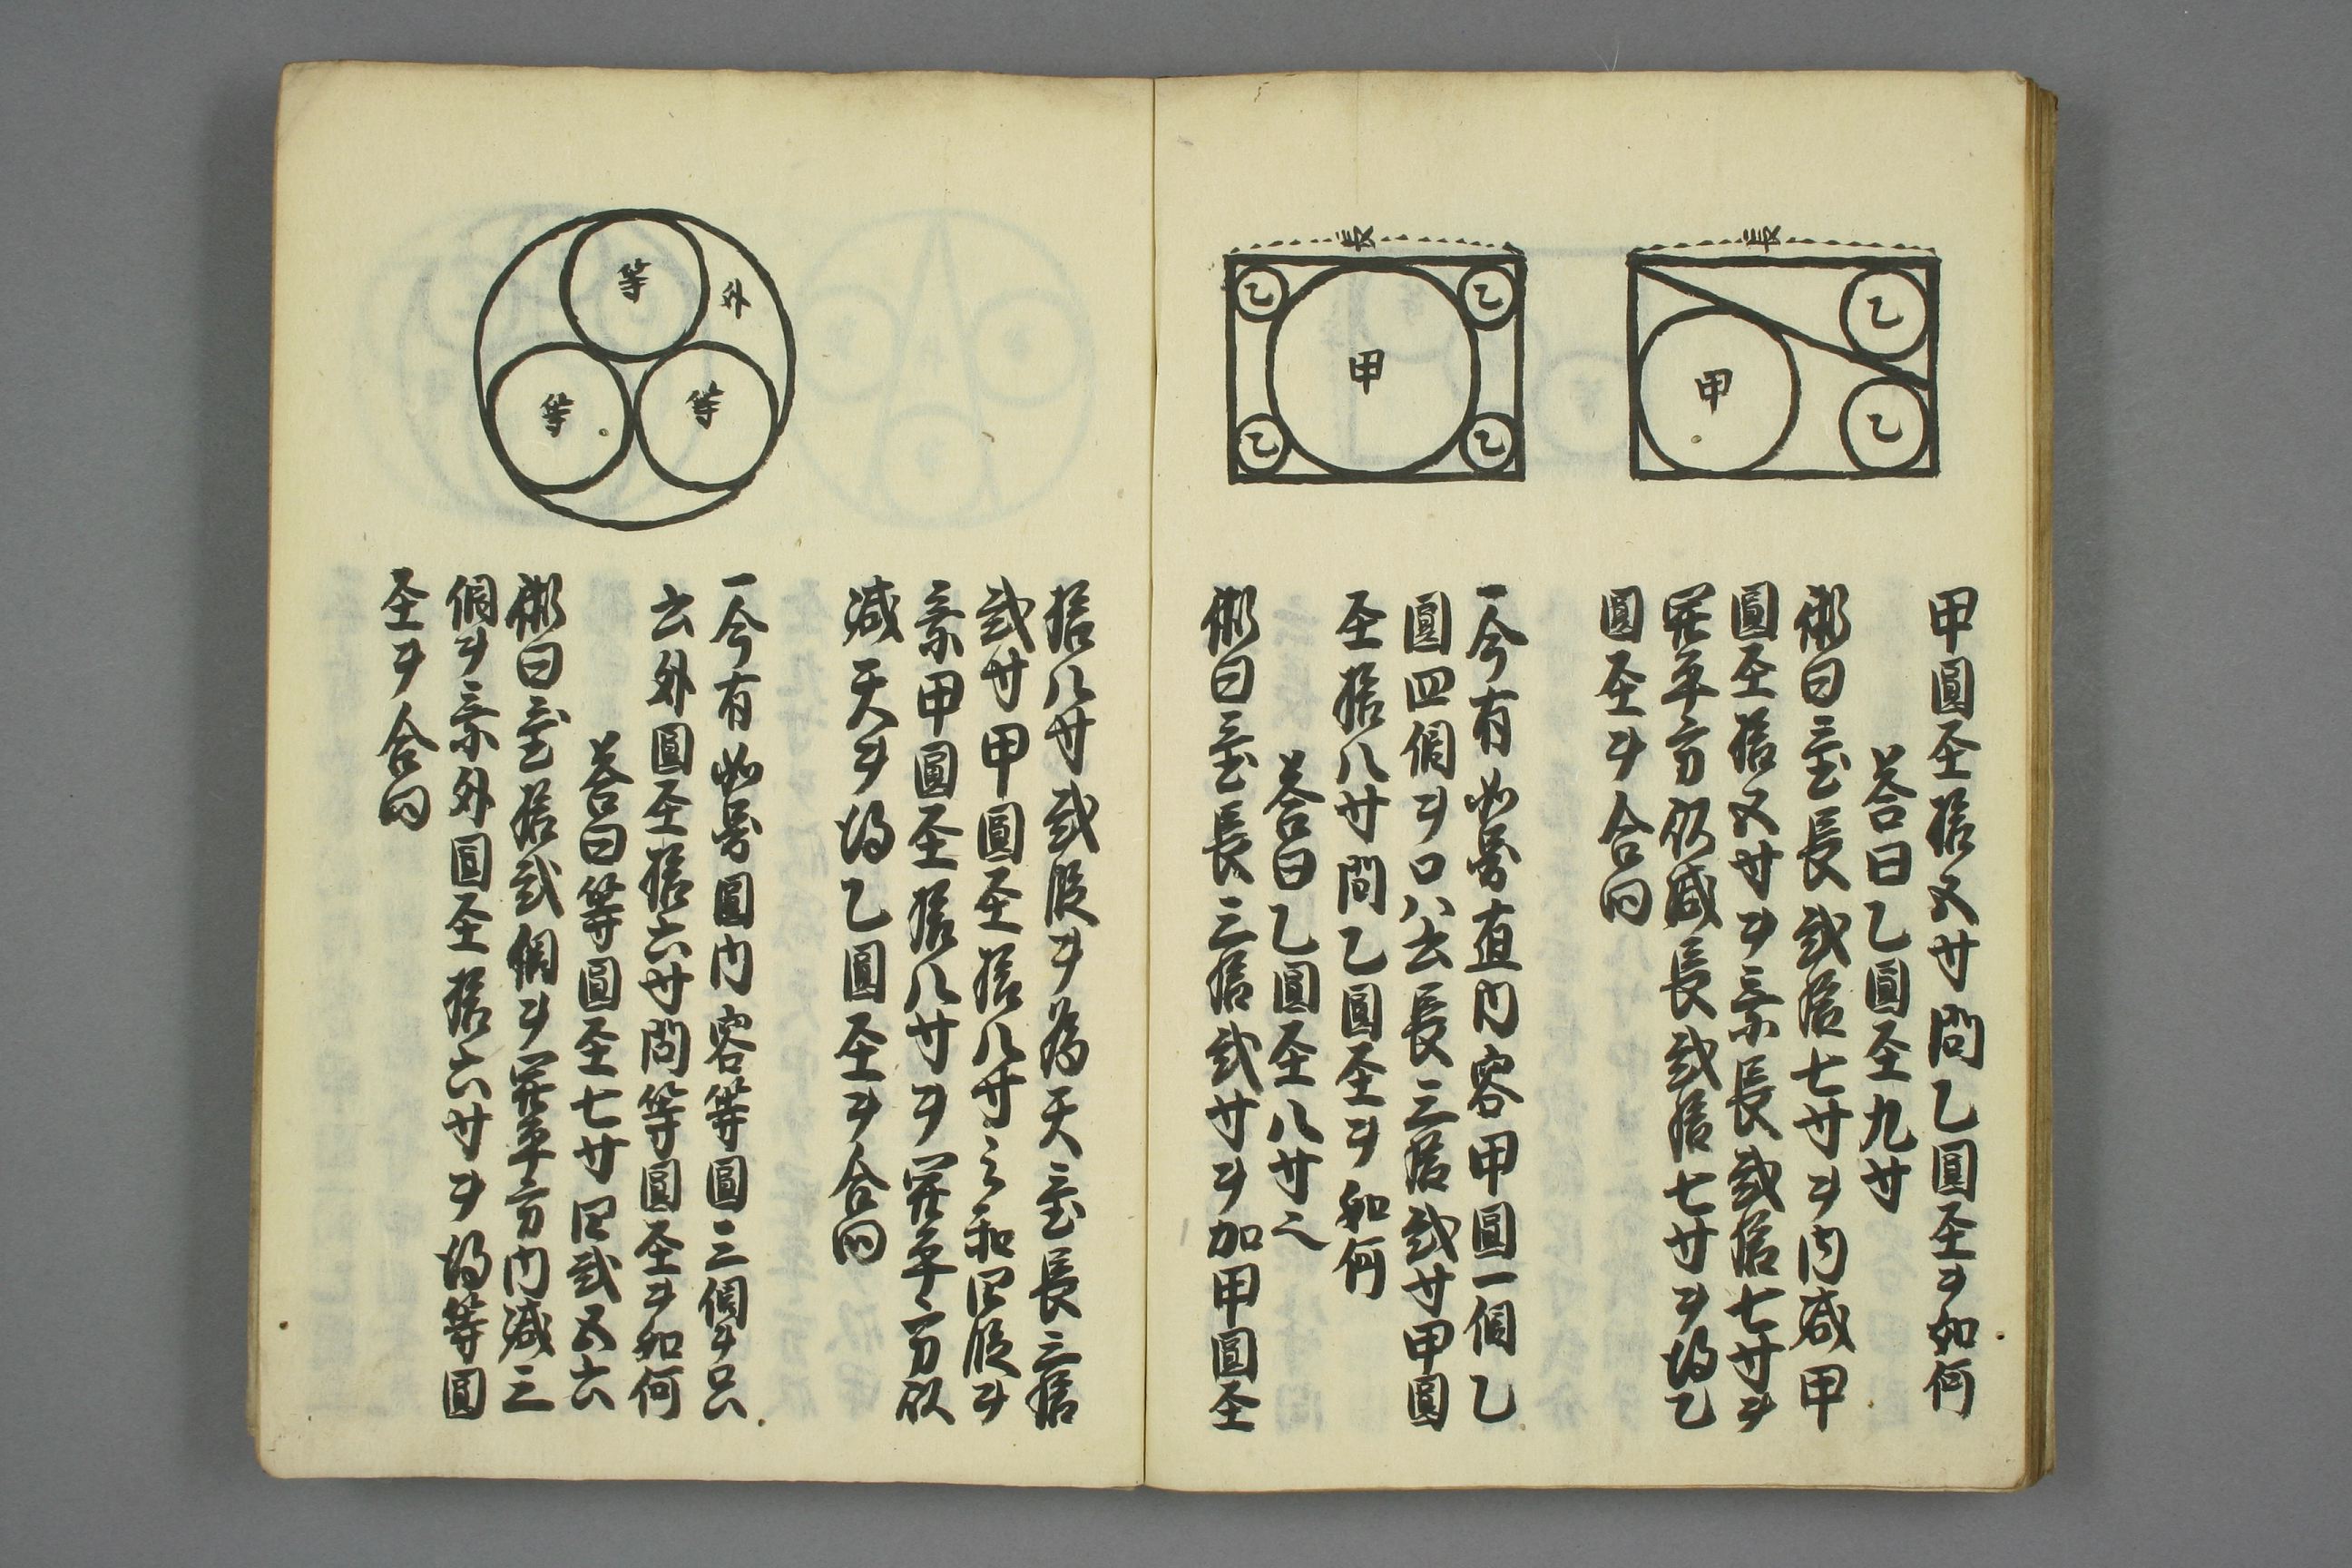 長
乙
甲
乙
長
乙
乙
甲
乙
乙
甲圓至拾五寸問乙圓至ヲ如何
答曰乙圓至九寸
術曰置長弐拾七寸ヲ内减甲
圓至拾五寸ヲ乗長弐拾七寸ヲ
開平方仍减長弐拾七寸ヲ得乙
圓至ヲ合問
一今有如図直内容甲圓一個乙
圓四個ヲ只云長三拾弐寸甲圓
至拾八寸問乙圓至ヲ如何
答曰乙圓至八寸之
術曰置長三拾弐寸ヲ加甲圓至
等
外
等
等
拾八寸弐段ヲ為天置長三拾
弐寸甲圓至拾八寸之和四段ヲ
乗甲圓至拾八寸ヲ開平方以
减天ヲ得乙圓至ヲ合問
一今有如図圓内容等圓三個ヲ只
云外圓至拾六寸問等圓至ヲ如何
答曰等圓至七寸四弐五六
術曰置拾弐個ヲ開平方内减三
個ヲ乗外圓至拾六寸ヲ得等圓
至ヲ合問